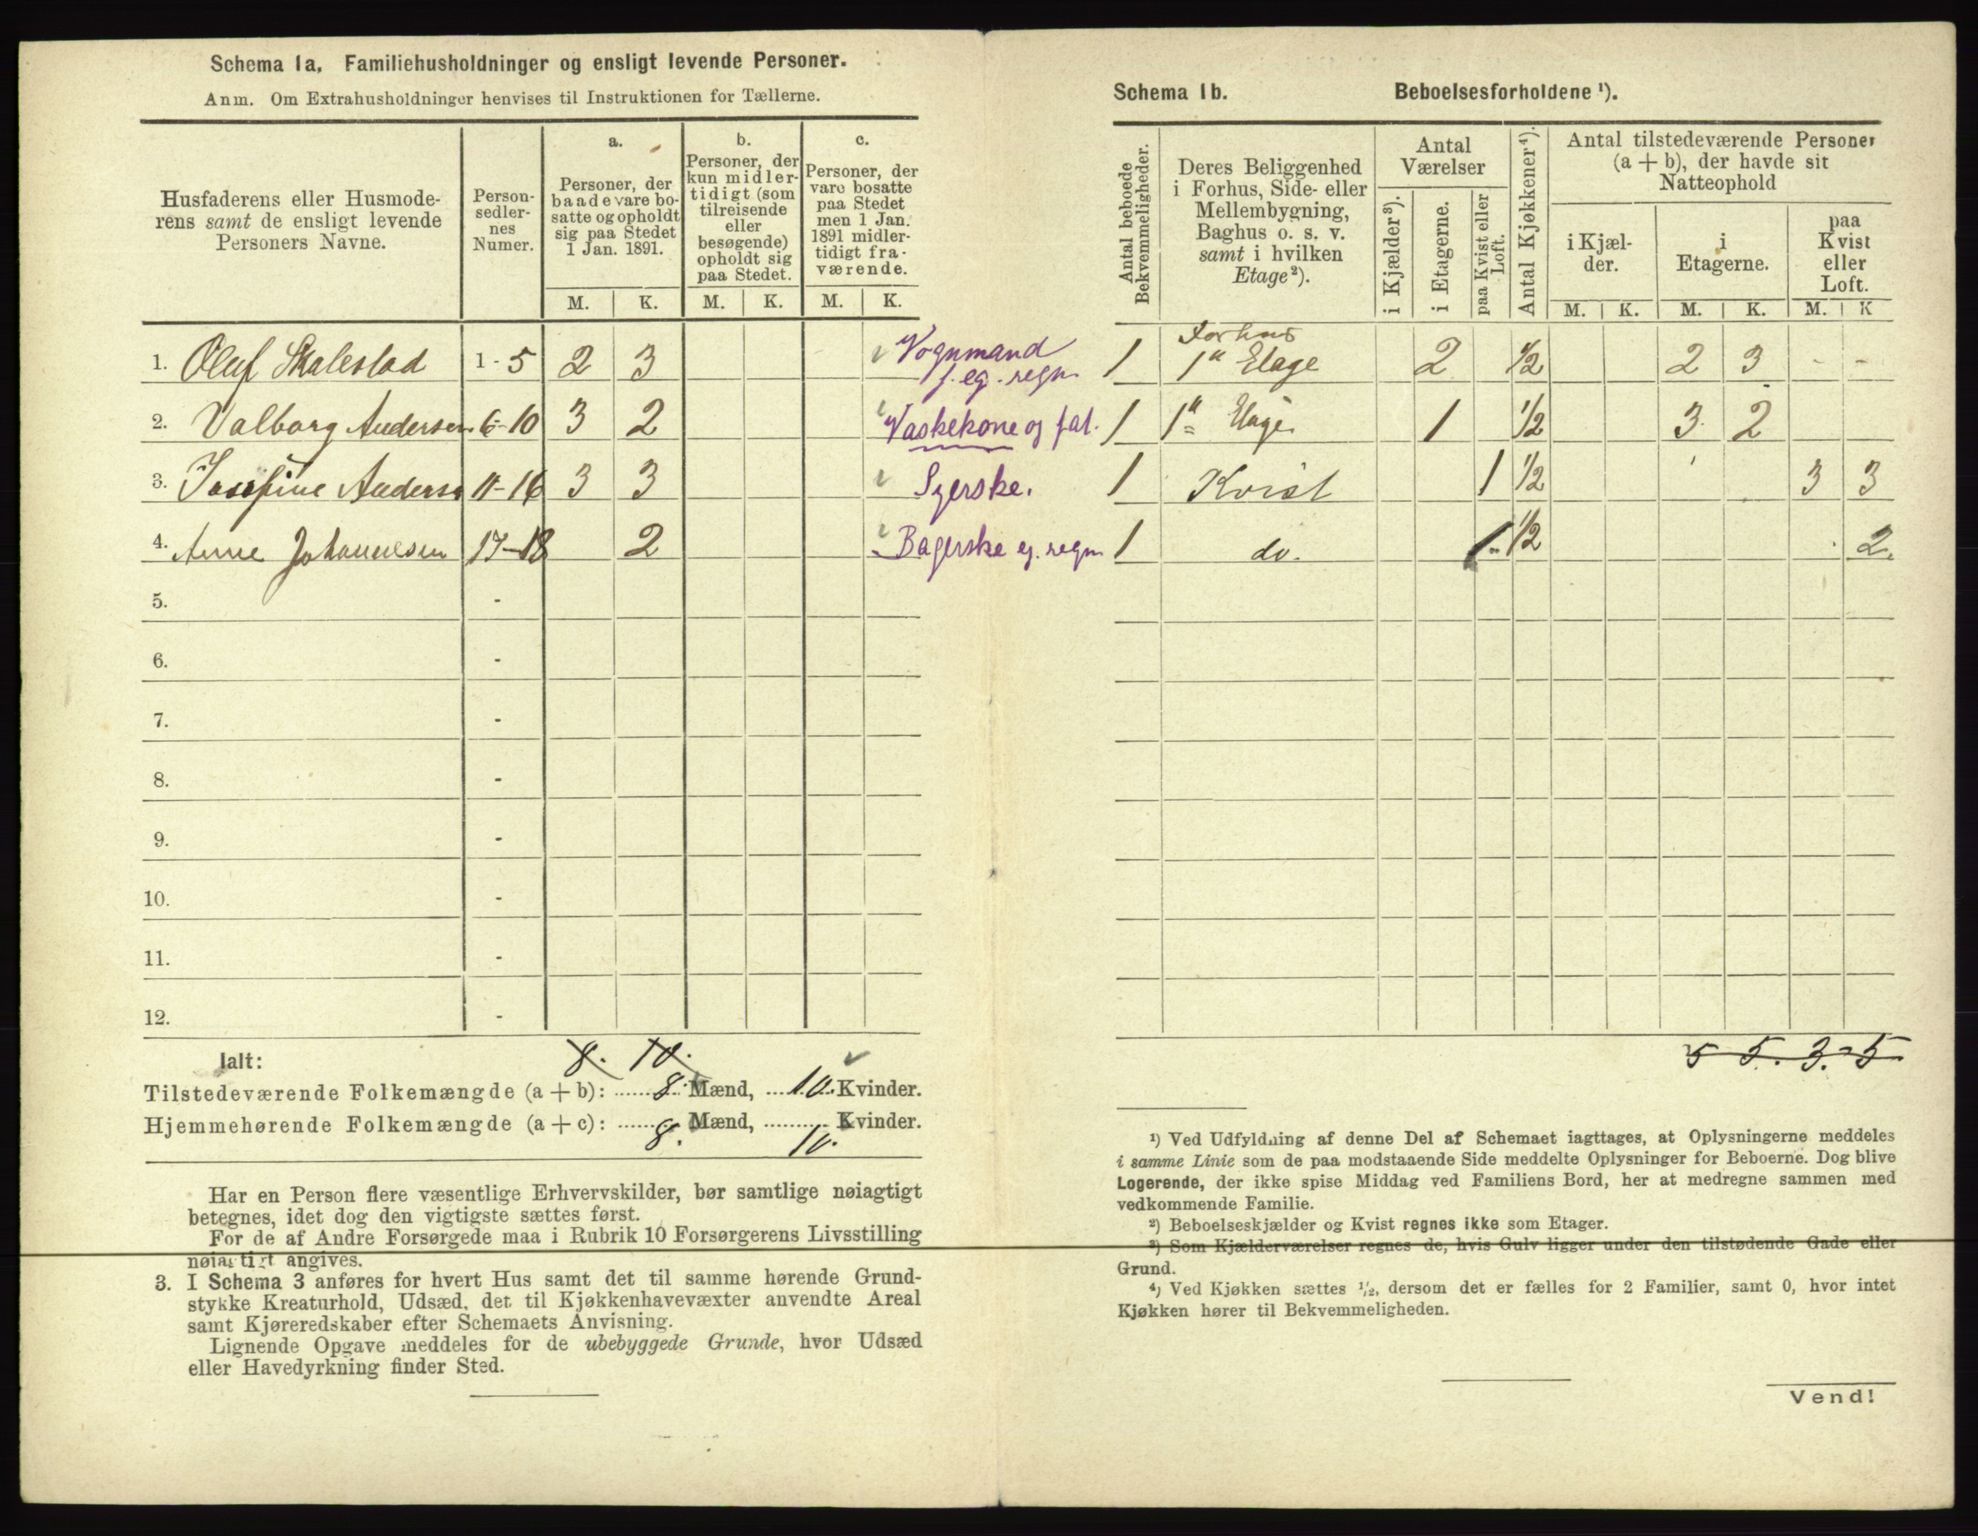 Schema 1a. Familiehusholdninger og ensligt levende Personer.
Anm. Om Extrahusholdninger henvises til Instruktionen for Tællerne.
Husfaderens eller Husmode-
rens samt de ensligt levende
Personers Navne.
Person-
sedler-
nes
Numer.
a.
Personer, der
baade vare bo-
satte og opholdt
sig paa Stedet
1 Jan. 1891.
b.
Personer, der
kun midler-
tidigt (som
tilreisende
eller
besøgende)
opholdt sig
paa Stedet.
c.
Personer, der
vare bosatte
paa Stedet
men 1 Jan.
1891 midler-
tidigt fra-
værende.
M. K. M. K. M. K.
1. Oluf Skalestad 1-5 2 3 Vognmand
f. eg. regn.
2. Valborg Andersen 6-10 3 2 Vaskekone og fat.
3. Josefine Anderse 11-16 3 3 Syerske.
4. Anne Johannesen 17-18 2 Bagerske eg. regn.
5. -
6. -
7. -
8. -
9. -
10. -
11. -
12. -
Ialt: 8. 10.
Tilstedeværende Folkemængde (a+b): 8. Mænd, 10. Kvinder.
Hjemmehørende Folkemængde (a+c): 8. Mænd, 10. Kvinder.
Har en Person flere væsentlige Erhvervskilder, bør samtlige nøiagtigt
betegnes, idet dog den vigtigste sættes først.
For de af Andre Forsørgede maa i Rubrik 10 Forsørgerens Livsstilling
nøiagtigt angives.
3. I Schema 3 anføres for hvert Hus samt det til samme hørende Grund-
stykke Kreaturhold, Udsæd, det til Kjøkkenhavevæxter anvendte Areal
samt Kjøreredskaber efter Schemaets Anvisning.
Lignende Opgave meddeles for de ubebyggede Grunde, hvor Udsæd
eller Havedyrkning finder Sted.
Schema 1b. Beboelsesforholdene ¹).
Antal beboede
Bekvemmeligheder.
Deres Beliggenhed
i Forhus, Side- eller
Mellembygning,
Baghus o. s. v.
samt i hvilken
Etage²).
Antal
Værelser
i Kjælder³).
i Etagerne.
paa Kvist eller
Loft.
Antal Kjøkkener⁴).
Antal tilstedeværende Personer
(a+b), der havde sit
Natteophold
i Kjæl-
der.
i
Etagerne.
paa
Kvist
eller
Loft.
M. K. M. K. M. K
Forhus
1 1ste Etage 2 1/2 2 3 - -
1 1ste Etage 1 1/2 3 2
1 Kvist 1 1/2 3 3
1 do. 1 1/2 2.
5 5. 3. 5.
¹) Ved Udfyldning af denne Del af Schemaet iagttages, at Oplysningerne meddeles
i samme Linie som de paa modstaaende Side meddelte Oplysninger for Beboerne. Dog blive
Logerende, der ikke spise Middag ved Familiens Bord, her at medregne sammen med
vedkommende Familie.
²) Beboelseskjælder og Kvist regnes ikke som Etager.
³) Som Kjælderværelser regnes de, hvis Gulv ligger under den tilstødende Gade eller
Grund.
⁴) Ved Kjøkken sættes ¹/₂, dersom det er fælles for 2 Familier, samt 0, hvor intet
Kjøkken hører til Bekvemmeligheden.
Vend!